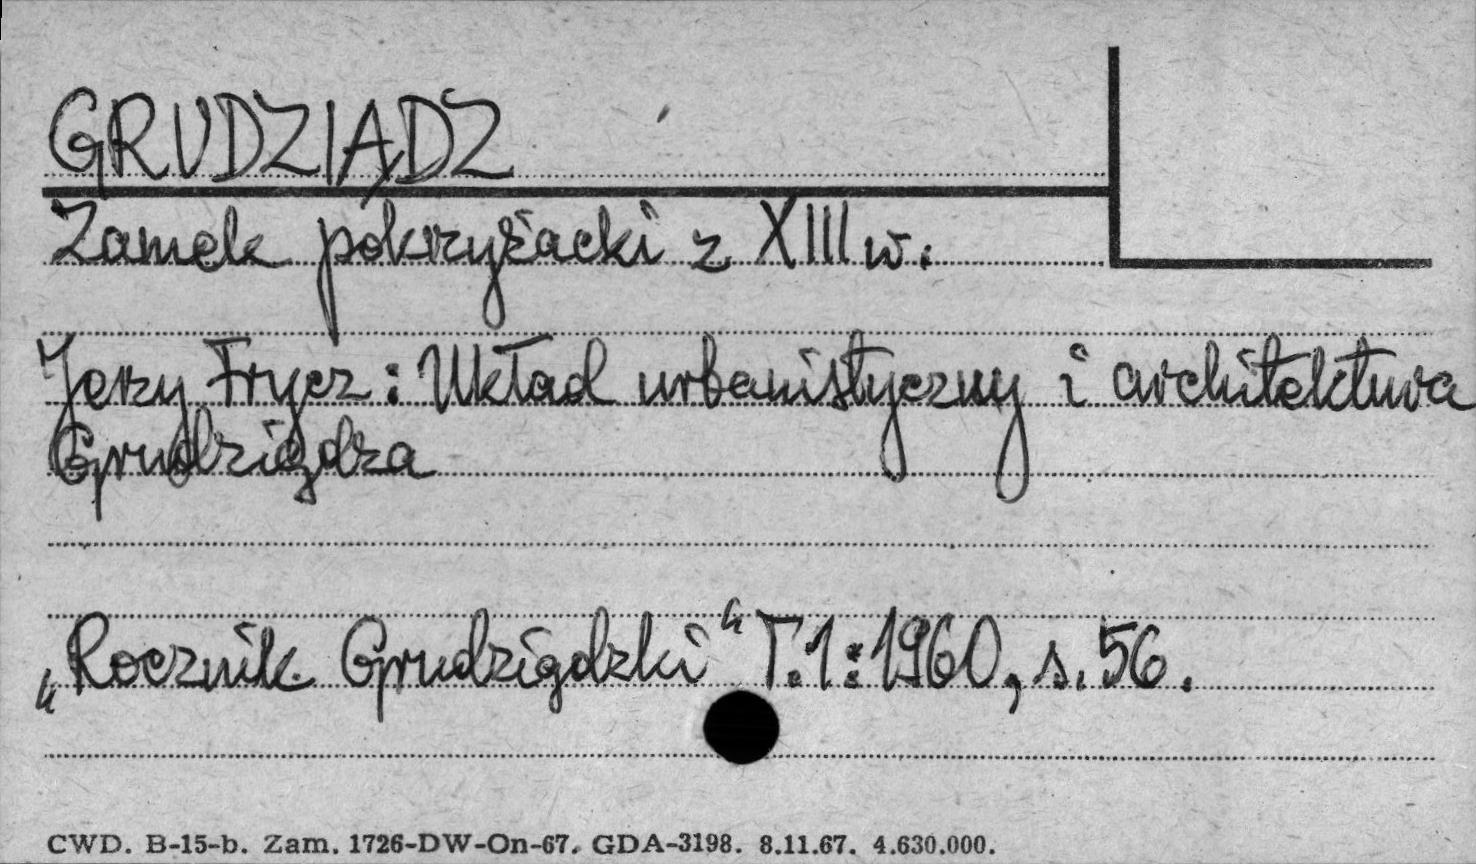 GRUDZIĄDZ
Zamek pokrzyżacki z XIII w.
Jerzy Frycz: Układ urbanistyczny i architektura
Grudziądza
„Rocznik Grudziądzki" T.1:1960, s. 56.
CWD. B-15-b. Zam. 1726-DW-On-67. GDA-3198. 8.11.67. 4.630.000.